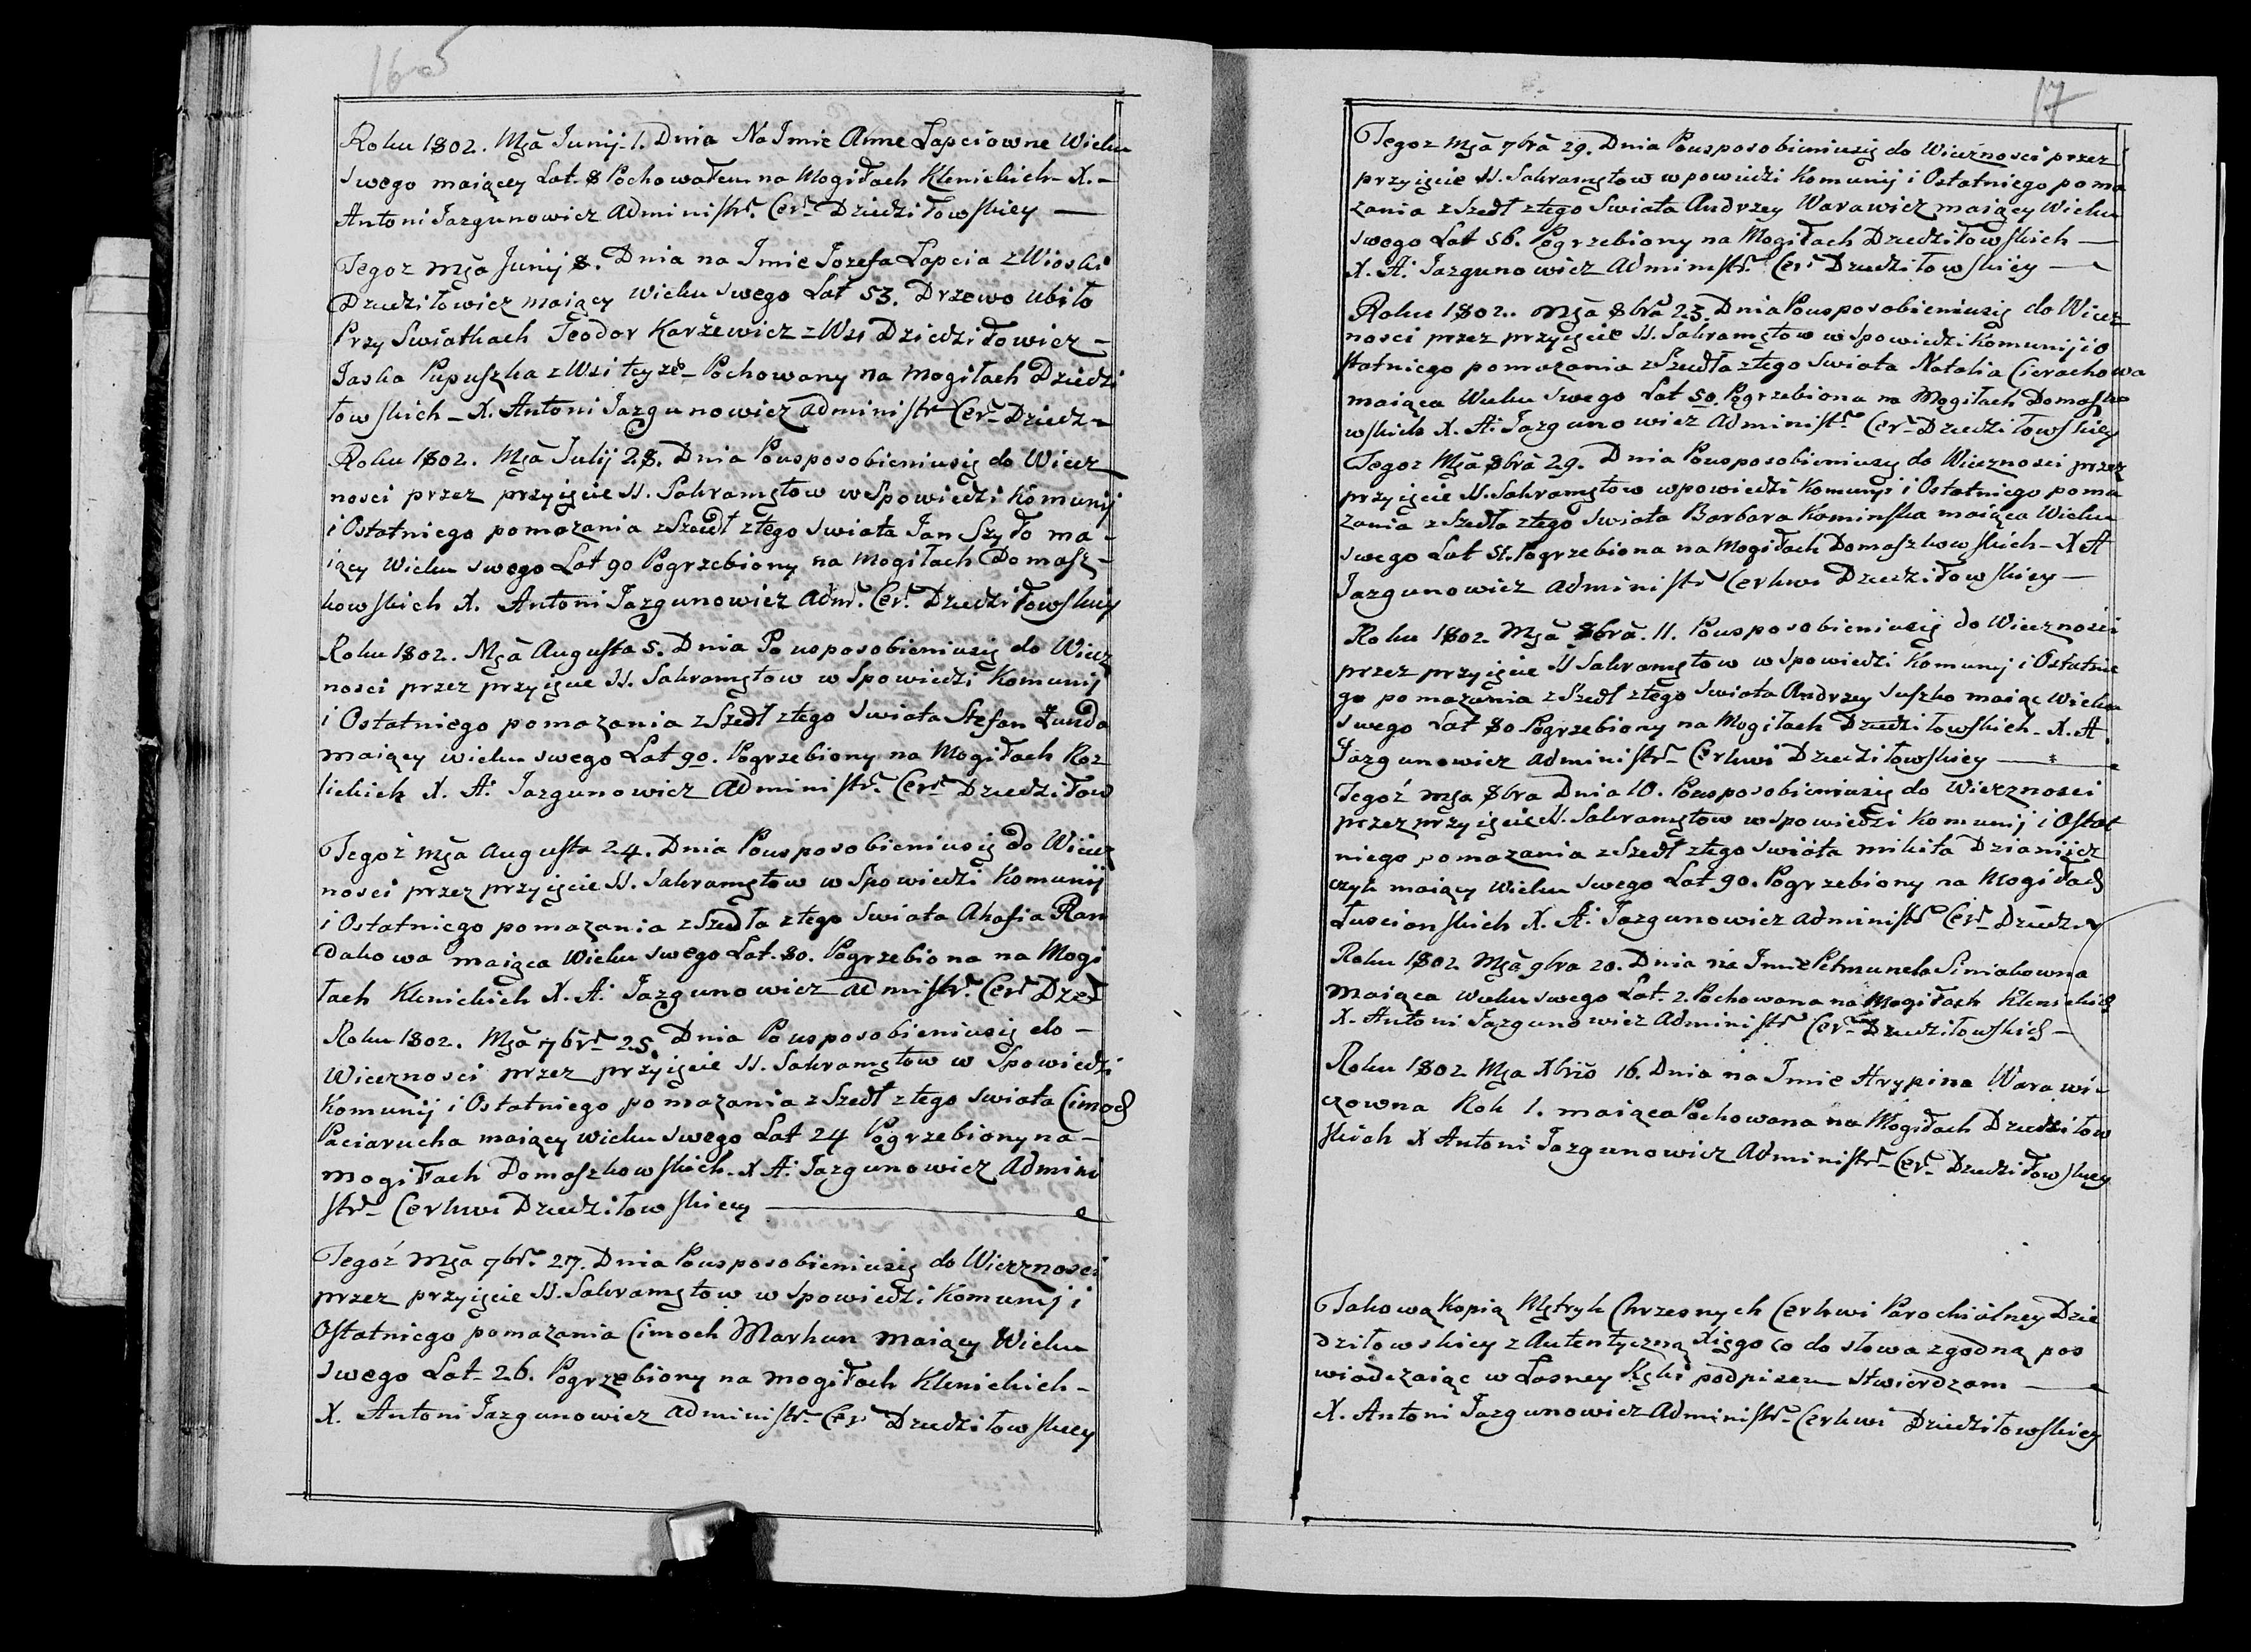 16 o
Roku 1802. Mçã Junij 1. Dnia Na Imie Anne Łapciowne Wieku
swego maiącey Lat 8 Pochowałem na Mogiłach Klenickich X.
Antoni Jazgunowicz Administr. Cer. Dziedziłowskiey
Tegoz Mçã Junij 8. Dnia na Imie Jozefa Łapcia z Wioski
Dziedziłowicz maiący Wieku swego Lat 53. Drzewo ubiło
Przy Swiatkach Teodor Karżewicz z Wsi Dziedziłowicz
Jaska Pupuszka z Wsi teyże Pochowany na Mogiłach Dziedzi
łowskich X. Antoni Jazgunowicz Administr Cer. Dziedz
Roku 1802. Mçã Julij 28. Dnia Pousposobieniusię do Wiecz
nosci przez przyięcie SS. Sakramętow w Spowiedzi Komunij
i Ostatniego pomazania zSzedł ztego swiata Jan Szyło ma
iący Wieku swego Lat 90 Pogrzebiony na Mogiłach Domasz
kowskich X. Antoni Jazgunowicz Adm. Cer. Dziedziłowskiy
Roku 1802. Mçã Augusta 5. Dnia Pousposobieniusię do Wiecz
nosci przez przyięcie SS. Sakramętow w Spowiedzi Komunij
i Ostatniego pomazania zSzedł ztego swiata Stefan Zunda
maiący wieku swego Lat 90. Pogrzebiony na Mogiłach Roz
lickich X. A. Jazgunowicz Administr. Cer. Dziedziłow
Tegoż Mçã Augusta 24. Dnia Pousposobieniusię do Wiecz
nosci przez przyięcie SS. Sakramętow w Spowiedzi Komunij
i Ostatniego pomazania zSzedła ztego swiata Ahafia Ran
dakowa maiąca Wieku swego Lat 80. Pogrzebiona na Mogi
łach Klenickich X. A. Jazgunowicz Admistr. Cer. Dzed
Roku 1802. Mçã 7br. 25. Dnia Pousposobieniusię do
Wiecznosci przez przyięcie SS. Sakramętow w Spowiedzi
Komunij i Ostatniego pomazania zSzedł ztego swiata Cimoch
Paciarucha maiący wieku swego Lat 24 Pogrzebiony na
mogiłach Domaszkowskich X A. Jazgunowicz Admini
str. Cerkwi Dziedziłowskiey
Tegoż Mçã 7br. 27. Dnia Pousposobieniusię do Wiecznosci
przez przyięcie SS. Sakramętow w Spowiedzi Komunij i
Ostatniego pomazania Cimoch Markun maiący Wieku
swego Lat 26. Pogrzebiony na mogiłach Klenickich
X. Antoni Jazgunowicz Administr. Cer. Dziedziłowskiey
17
Tegoz Mçã 7brã 29. Dnia Pousposobieniusię do Wiecznosci przez
przyięcie SS. Sakramętow wpowiedzi Komunij i Ostatniego poma
zania zSzedł ztego Swiata Andrzey Warawicz maiący Wieku
swego Lat 56. Pogrzebiony na Mogiłach Dziedziłowskich
X. A. Jazgunowicz Administr. Cer. Dziedziłowskiey
Roku 1802. Mçã 8brã 23. Dnia Pousposobieniusię do Wiecz
nosci przez przyięcie SS. Sakramętow w Spowiedzi Komunij i O
statniego pomazania zSzedła ztego Swiata Natalia Cierachowa
maiąca Wieku swego Lat 50. Pogrzebiona na Mogiłach Domaszko
wskich X. A. Jazgunowicz Administ. Cer. Dziedziłowskiey
Tegoz Mçã 8brã 29. Dnia Pousposobieniusię do Wiecznosci przez
przyięcie SS. Sakramętow wpowiedzi Komunij i Ostatniego poma
zania zSzedła ztego Swiata Barbara Kominska maiąca Wieku
swego Lat 51. Pogrzebiona na Mogiłach Domaszkowskich X A
Jazgunowicz Administr Cerkwi Dziedziłowskiey
Roku 1802 Mçã 8brã. 11. Pousposobieniusię do Wiecznosci
przez przyięcie SS Sakramętow w Spowiedzi Komunij i Ostatnie
go pomazania zSzedł ztego swiata Andrzey Suszko maiąc Wieku
swego Lat 80 Pogrzebiony na Mogiłach Dziedziłowskich. X. A.
Jazgunowicz Administr. Cerkwi Dziedziłowskiey
Tegoż Mça 8bra Dnia 10. Pousposobieniusię do Wiecznosci
przez przyięcie SS. Sakramętow w Spowiedzi Komunij i Ostat
niego pomazania zSzedł ztego swiata mikita Dzianiicz
czyk maiący Wieku swego Lat 90. Pogrzebiony na Mogiłach
Łuscianskich X. A. Jazgunowicz Administr Cer. Dziedz
Roku 1802 Mçã 9bra 20. Dnia na Imie Petrunela Siniakowna
Maiąca wieku swego Lat. 2. Pochowana na Mogiłach Klenickich
X. Antoni Jazgunowicz Administr Cer. Dziedziłowskich
Roku 1802 Mça Xbriš 16. Dnia na Imie Hrypina Warawi
czowna Rok 1. maiąca Pochowana na Mogiłach Dziedziłow
skich X Antoni Jazgunowicz Administr. Cer. Dziedziłowskiey
Takową Kopią Mętryk Chrzesnych Cerkwi Parochialney Dzie
dziłowskiey z Autentyczną Xięgo co do słowa zgodną pos
wiadczaiąc w Łasney Ręki podpisem stwierdzam
X. Antoni Jazgunowicz Administr. Cerkwi Dziedziłowskiey